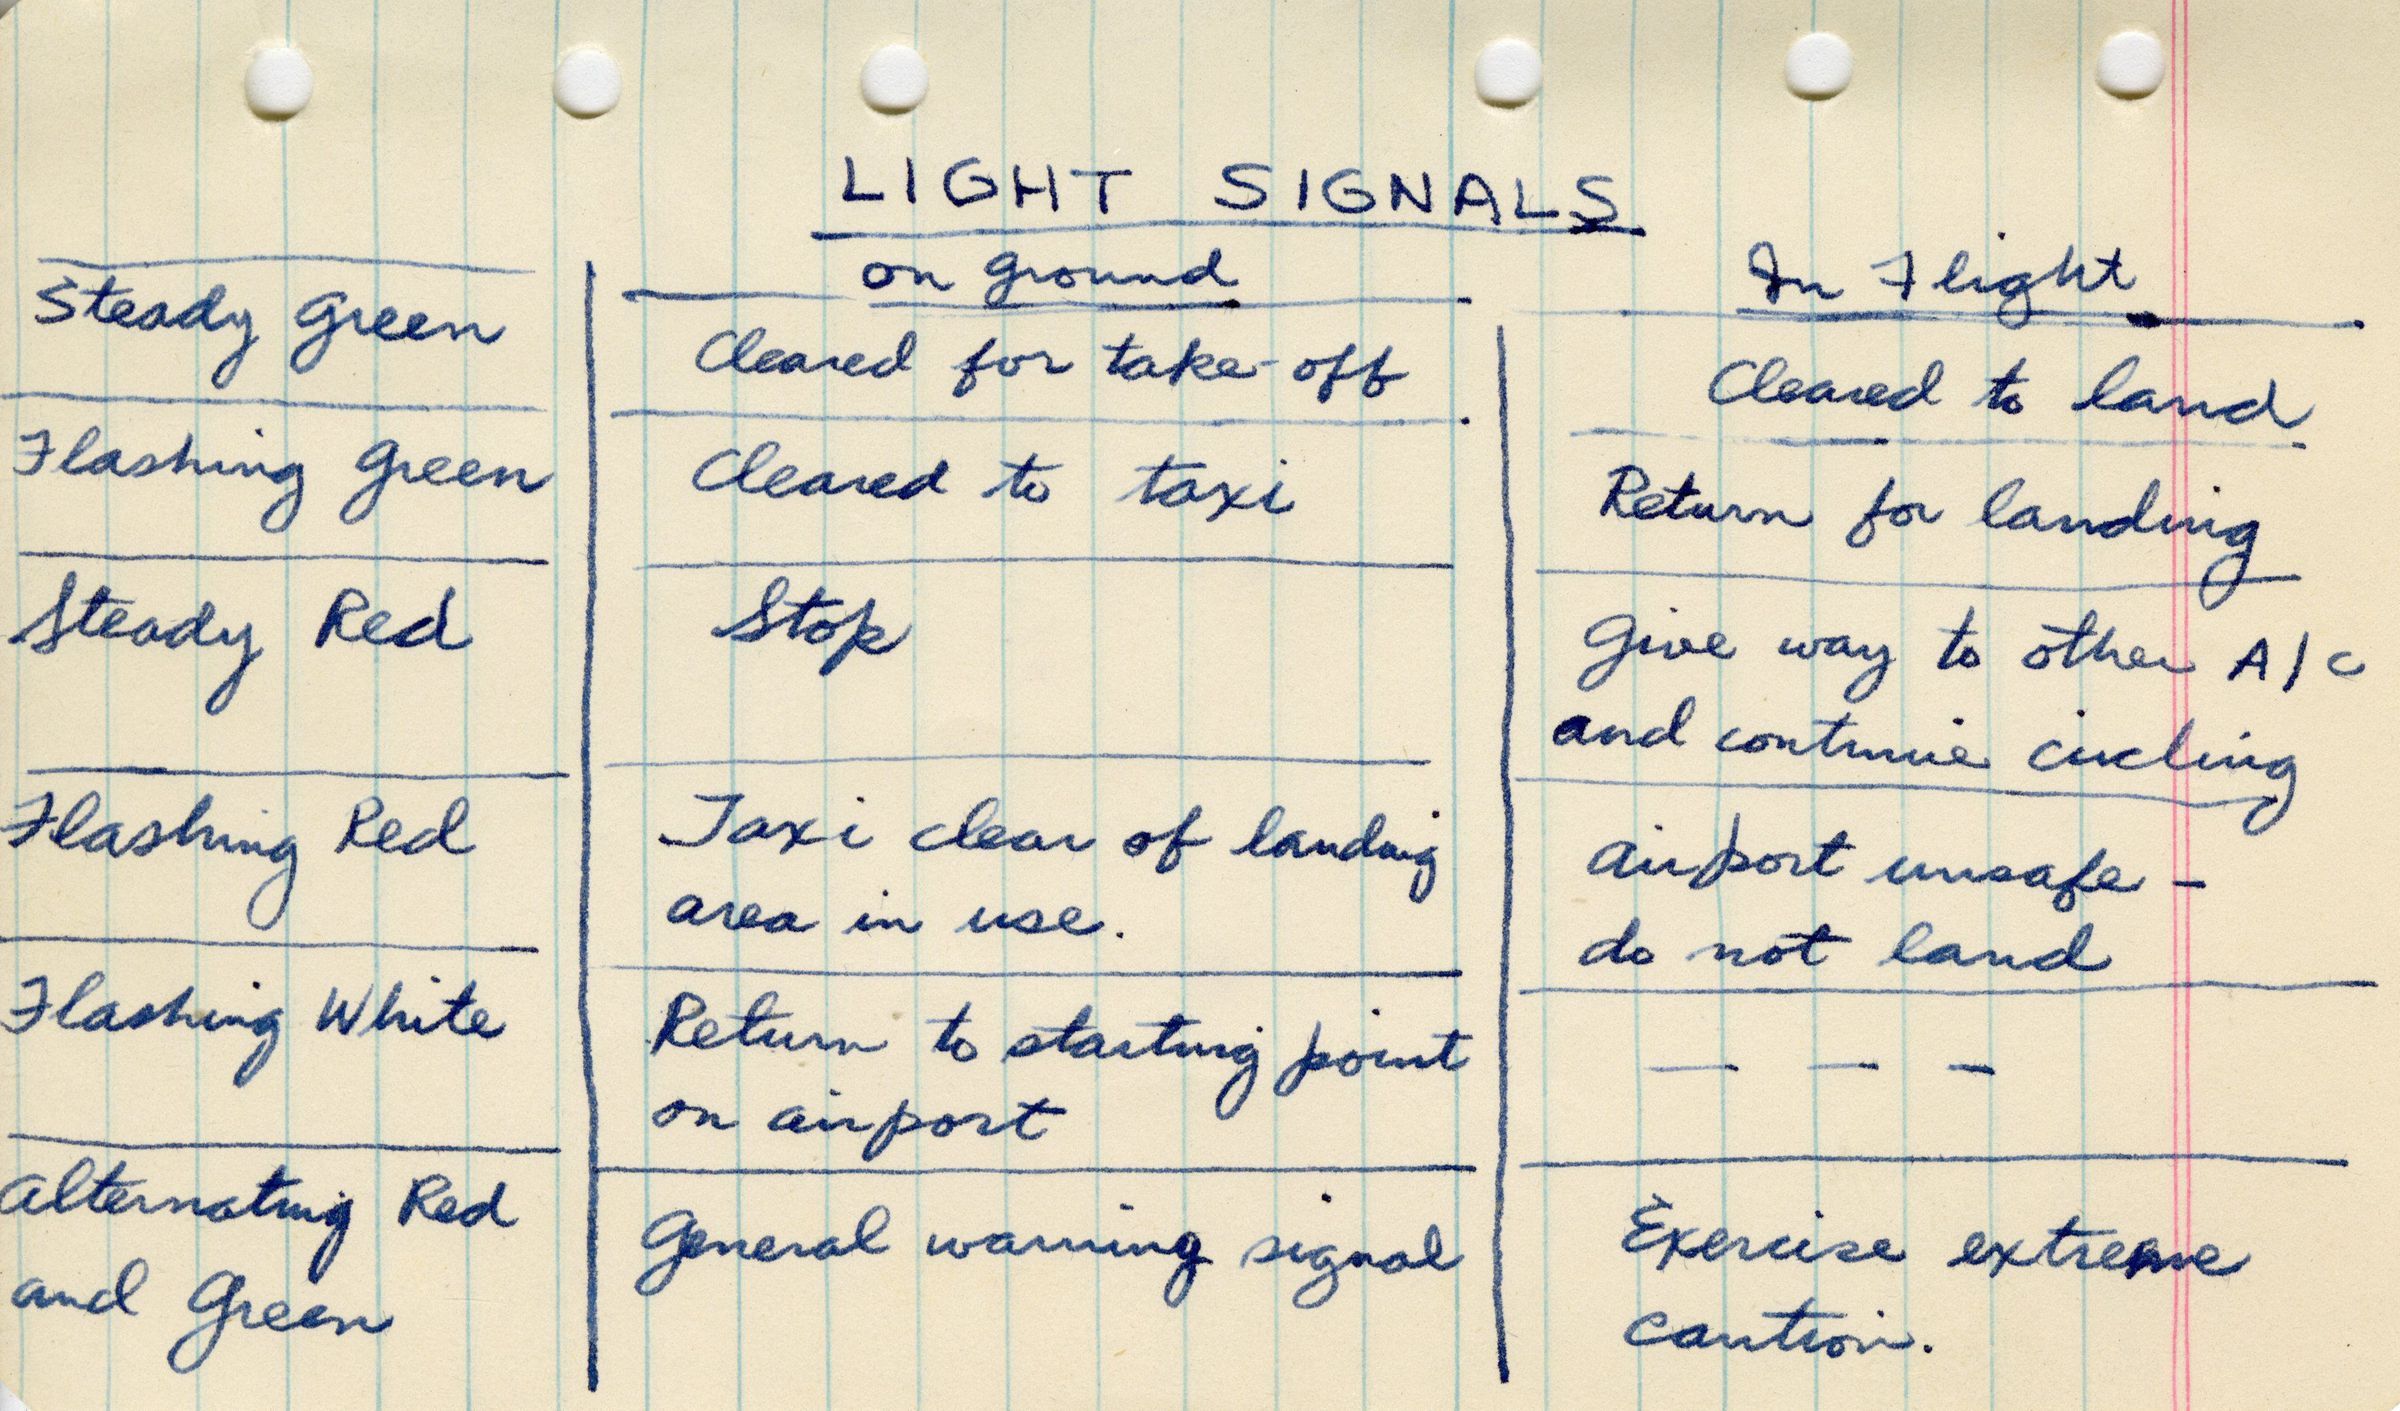 LIGHT SIGNALS
on ground
In Flight
Steady Green
Cleared for take-off
Cleared to land
Flashing Green
Cleared to taxi
Return for landing
Steady Red
Stop
Give way to other A/C
and continue circling
Flashing Red
Taxi clear of landing
area in use.
airport unsafe -
do not land
Flashing White
Return to starting point
on airport
— — —
Alternating Red
and Green
General warning signal
Exercise extreme
caution.